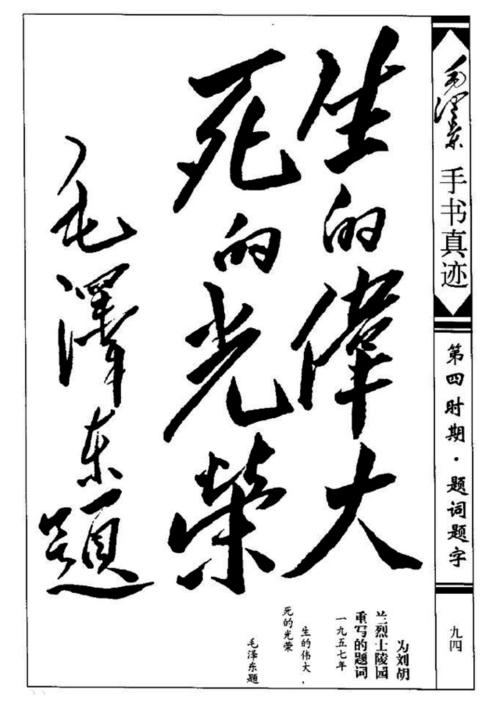 生的偉大
死的光榮
毛澤东題
毛澤东
手书真迹
第四时期·题词题字
九四
为刘胡
兰烈士陵园
重写的题词
一九五七年
生的伟大,
死的光荣
毛泽东题